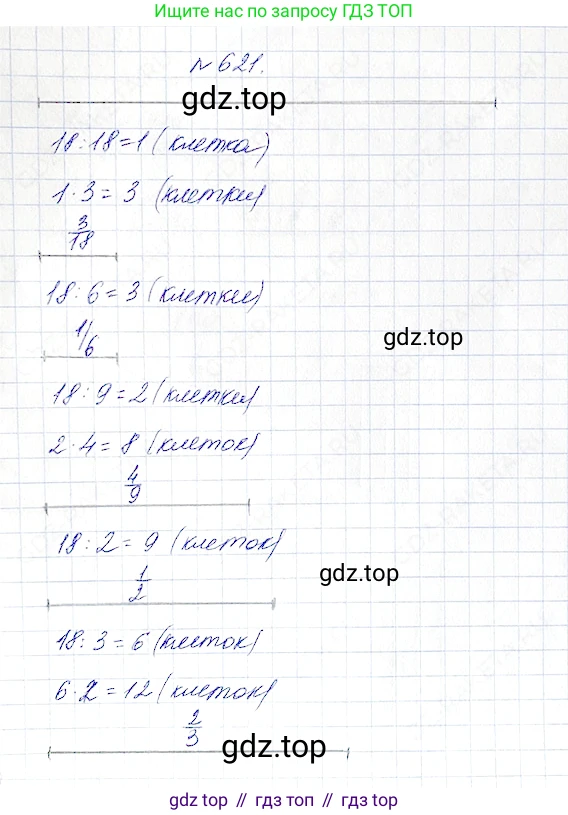 Ищите нас по запросу ГДЗ ТОП
№621.
gdz.top
18:18=1 (клетка)
1·3=3 (клетки)
3/18
18:6=3 (клетки)
1/6
gdz.top
18:9=2 (клетки)
2·4=8 (клеток)
4/9
18:2=9 (клеток)
1/2
gdz.top
18:3=6 (клеток)
6·2=12 (клеток)
2/3
gdz.top
gdz.top // гдз топ // гдз.top